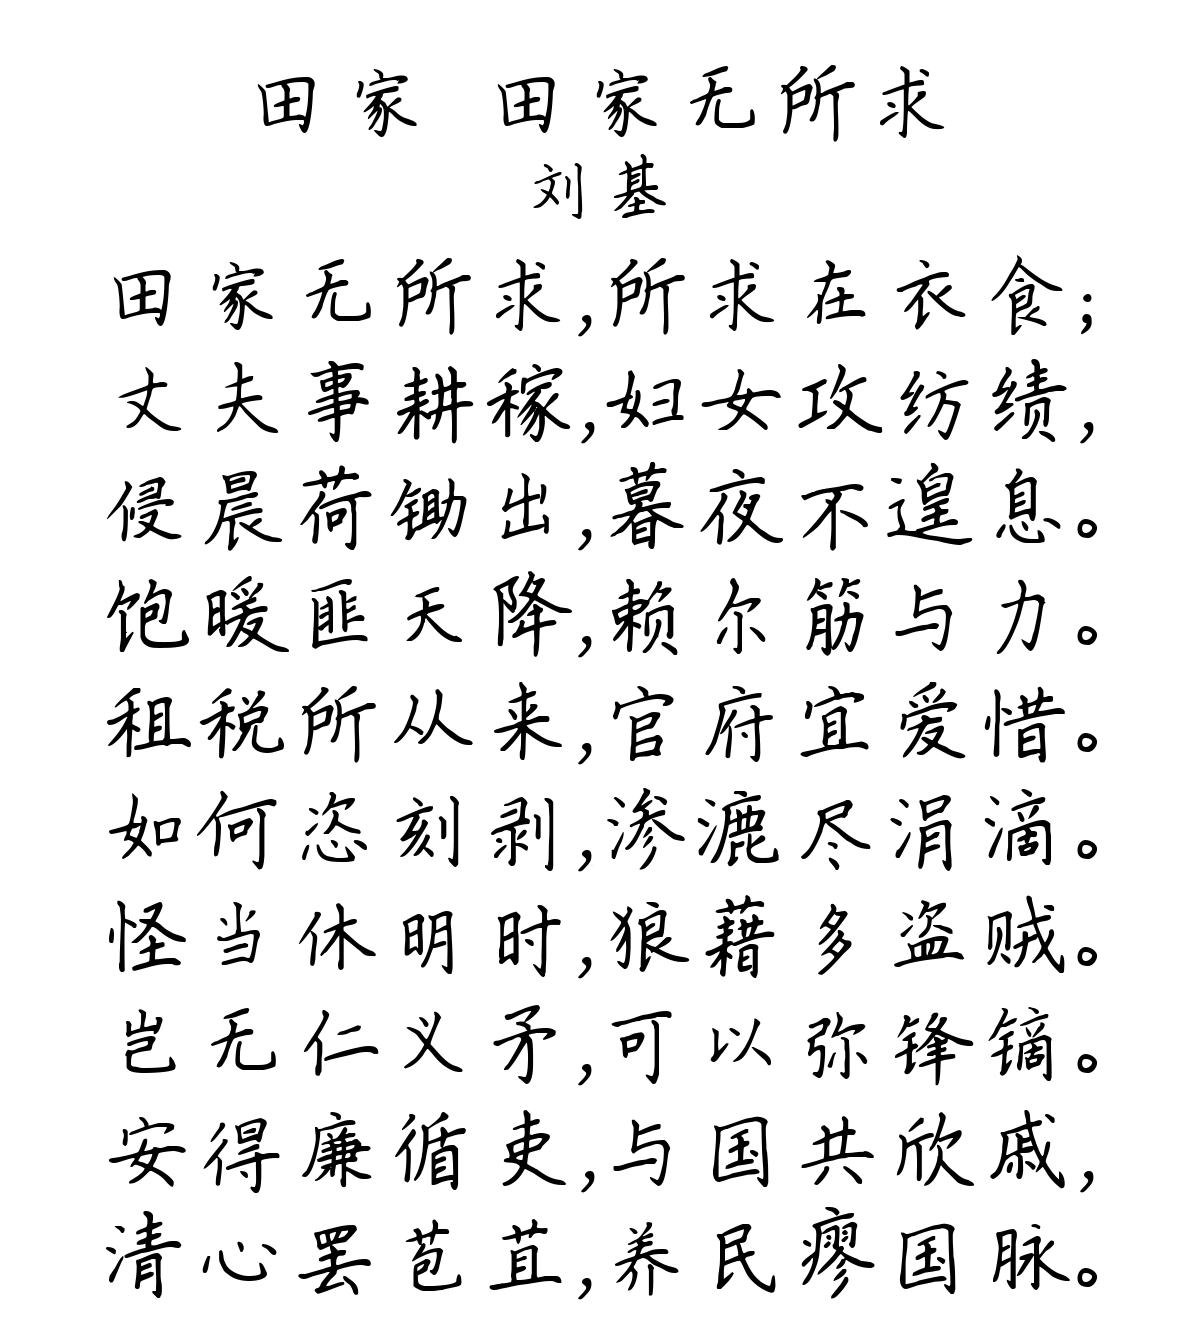 田家 田家无所求
刘基
田家无所求,所求在衣食;
丈夫事耕稼,妇女攻纺绩,
侵晨荷锄出,暮夜不遑息。
饱暖匪天降,赖尔筋与力。
租税所从来,官府宜爱惜。
如何恣刻剥,渗漉尽涓滴。
怪当休明时,狼藉多盗贼。
岂无仁义矛,可以弥锋镝。
安得廉循吏,与国共欣戚,
清心罢苞苴,养民瘳国脉。